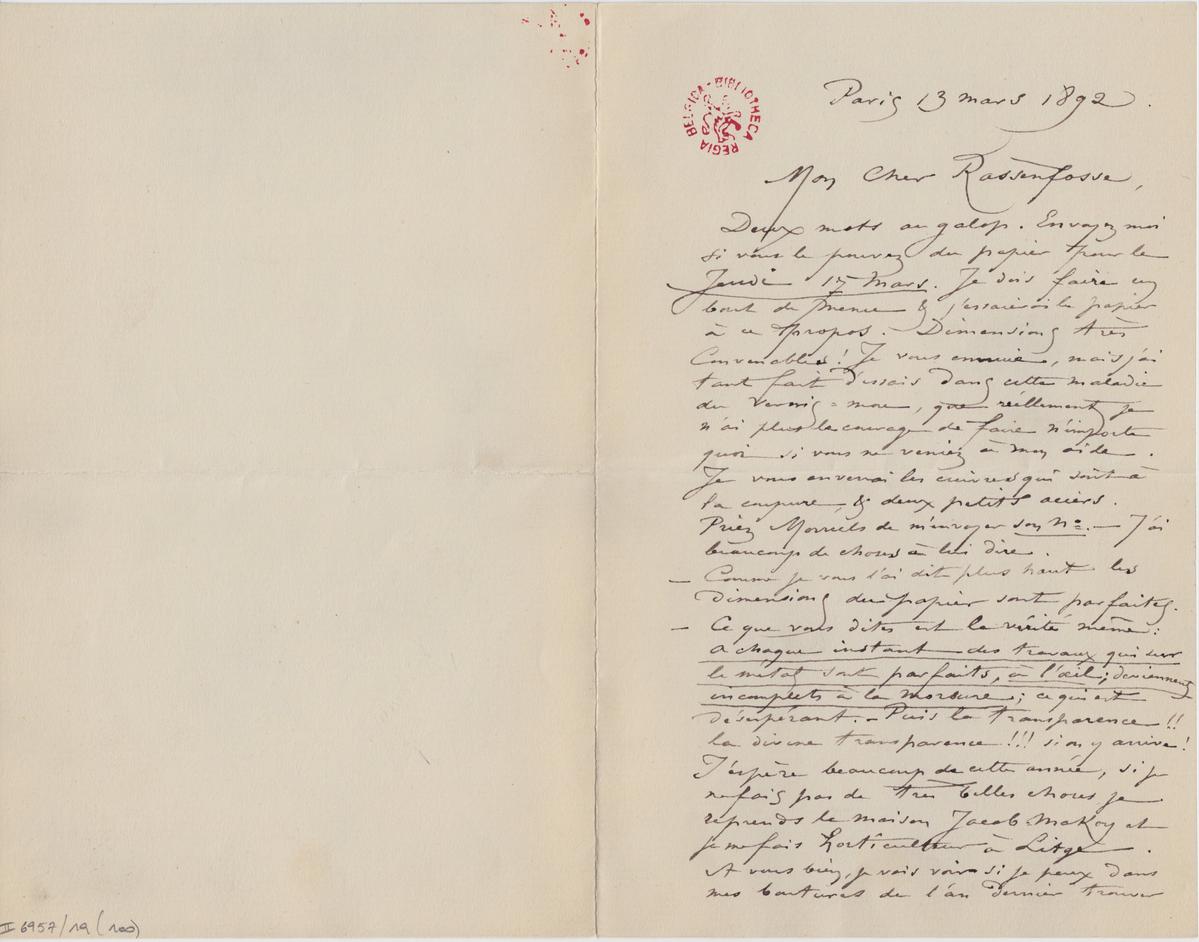 BIBLIOTHECA REGIA BELGICA
Paris 13 mars 1892.
Mon Cher Rassenfosse,
Deux mots au galop. Envoyez moi
si vous le pouvez du papier pour le
Jeudi 17 Mars. Je dois faire un
bout de & j'essaierai le papier
à ce propos. – Dimensions très
Convenables! Je vous ennuie, mais j'ai
tant fait d'essais dans cette maladie
du vernis-mou, que réellement je
n'ai plus le courage de faire n'importe
quoi si vous ne veniez à mon aide.
Je vous enverrai les cuivres qui sont à
la coupure & deux petits aciers.
Priez de m'envoyer son No. – J'ai
beaucoup de choses à lui dire.
– Comme je vous l'ai dit plus haut les
dimensions du papier sont parfaites.
– Ce que vous dites est la vérité même:
a chaque instant des travaux qui sur
le métal sont parfaits, à l'œil; deviennent
incomplets à la morsure; ce qui est
désespérant. – Puis la transparence!!
la divine transparence!!! si on y arrive!
J'espère beaucoup de cette année, si je
ne fais pas de très belles choses je
reprends la maison Jacob-Makoy et
je me fais horticulteur à Liège.
A vous bien, je vais voir si je peux dans
mes boutures de l'an dernier trouver
II 6957/19 (100)